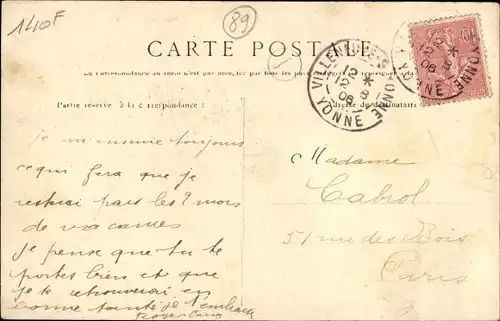 1410F
89
CARTE POSTALE
La correspondance au recto n'est pas acceptée
Partie réservée à la correspondance :
Adresse du destinataire
VILLENEUVE-S-YONNE
12
12 8
06
YONNE
je m'ennuie toujours
ce qui fera que je
resterai pas les 2 mois
de vacances
je pense que tu te
portes bien et que
je te retrouverai en
bonne santé je t'embrasse
Roger
Madame
Cabrol
51 rue des Bois
Paris